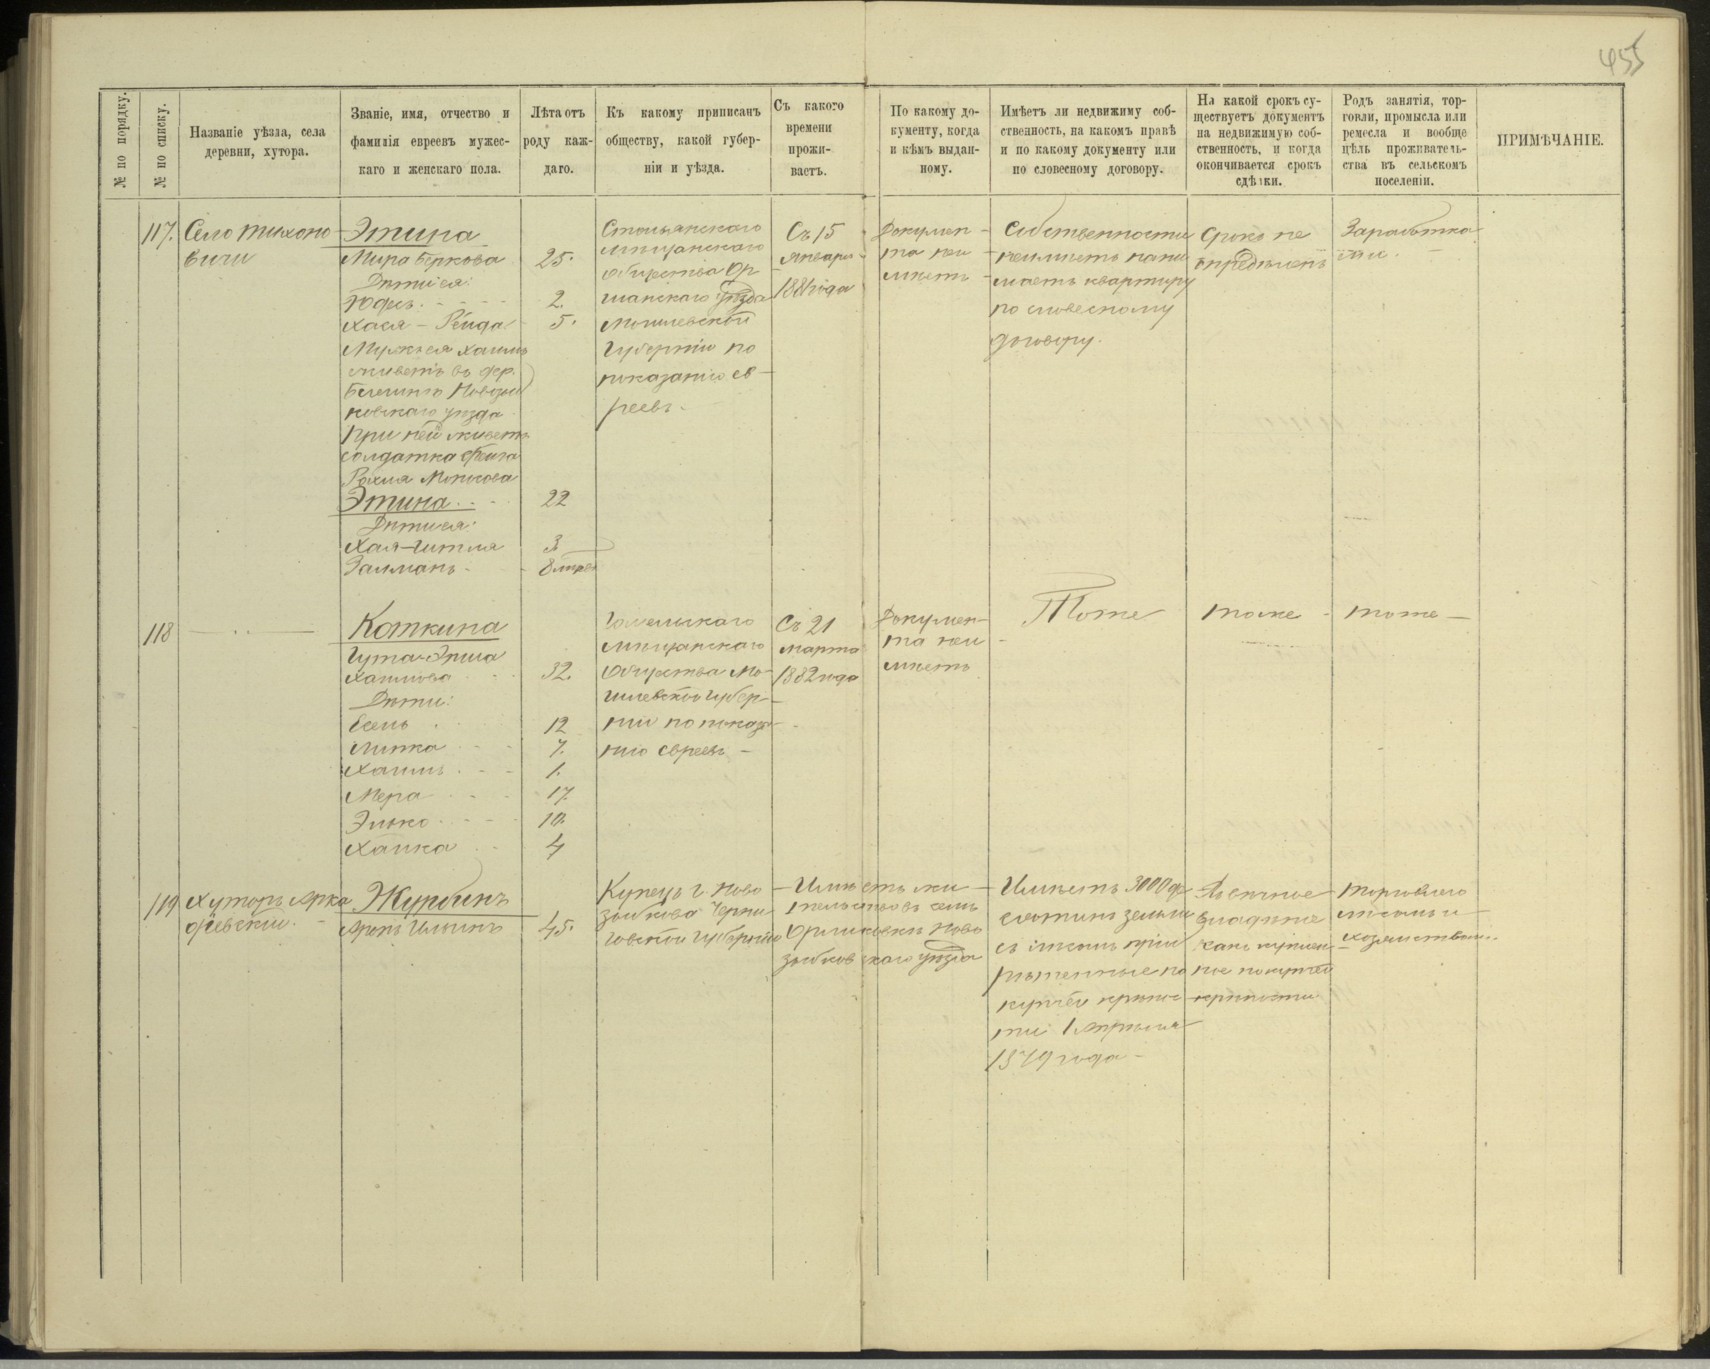 455
№ по порядку.
№ по списку.
Названіе уѣзда, села
деревни, хутора.
Званіе, имя, отчество и
фамилія евреевъ мужес-
каго и женскаго пола.
Лѣта отъ
роду каж-
даго.
Къ какому приписанъ
обществу, какой губер-
ніи и уѣзда.
Съ какого
времени
прожи-
ваетъ.
По какому до-
кументу, когда
и кѣмъ выдан-
ному.
Имѣетъ ли недвижиму соб-
ственность, на какомъ правѣ
и по какому документу или
по словесному договору.
На какой срокъ су-
ществуетъ документъ
на недвижимую соб-
ственность, и когда
окончивается срокъ
сдѣлки.
Родъ занятія, тор-
говли, промысла или
ремесла и вообще
цѣль проживатель-
ства въ сельскомъ
поселеніи.
ПРИМѢЧАНІЕ.
117.
Село Тихоно
вичи
Этина
Мира Беркова
Дѣти ея:
Юдесъ
Хася - Рейда
Мужъ ея Хаимъ
живетъ въ дер.
Новозыб
ковскаго уѣзда
При ней живетъ
солдатка
Этина
Дѣти ея:
Хая-Гитля
Залманъ
25.
2.
5.
22
3
8 мѣс
мѣщанскаго
общества Ор
шанскаго уѣзда
Могилевской
Губерніи по
показанію ев-
реевъ.
Съ 15
Января
1881 года
Докумен-
та неи
мѣетъ
Собственности
неимѣетъ нани-
маетъ квартиру
по словесному
договору.
Срокъ не
опредѣленъ
Заработка
ми.
118
Коткина
Гута-Эшка
Хаимова
Дѣти:
Есель
Липка
Хаимъ
Мера
Элько
Хаика
32.
12
7.
1.
17
10.
4
Гомельскаго
мѣщанскаго
Общества Мо-
гилевской губер-
ніи по показа-
нію евреевъ
Съ 21
марта
1882 года
Докумен-
та неи-
мѣетъ
Тоже
тоже
тоже
119
Хуторъ Арка
дьевскій.
Журбинъ
Аронъ Ильинъ
45.
Купецъ г. Ново
зыбкова Черни
говской губерніи
Имѣетъ жи
тельство въ селѣ
Ново
зыбковскаго уѣзда
Имѣетъ 3000 де
сятинъ земли
съ лѣсомъ пріоб
рѣтенные по
купчей крѣпос
ти 1 Апрѣля
1879 года
Вѣчное
владѣніе
какъ куплен
ное по купчей
крѣпости
Торговлею
лѣсомъ и
хозяйствомъ.